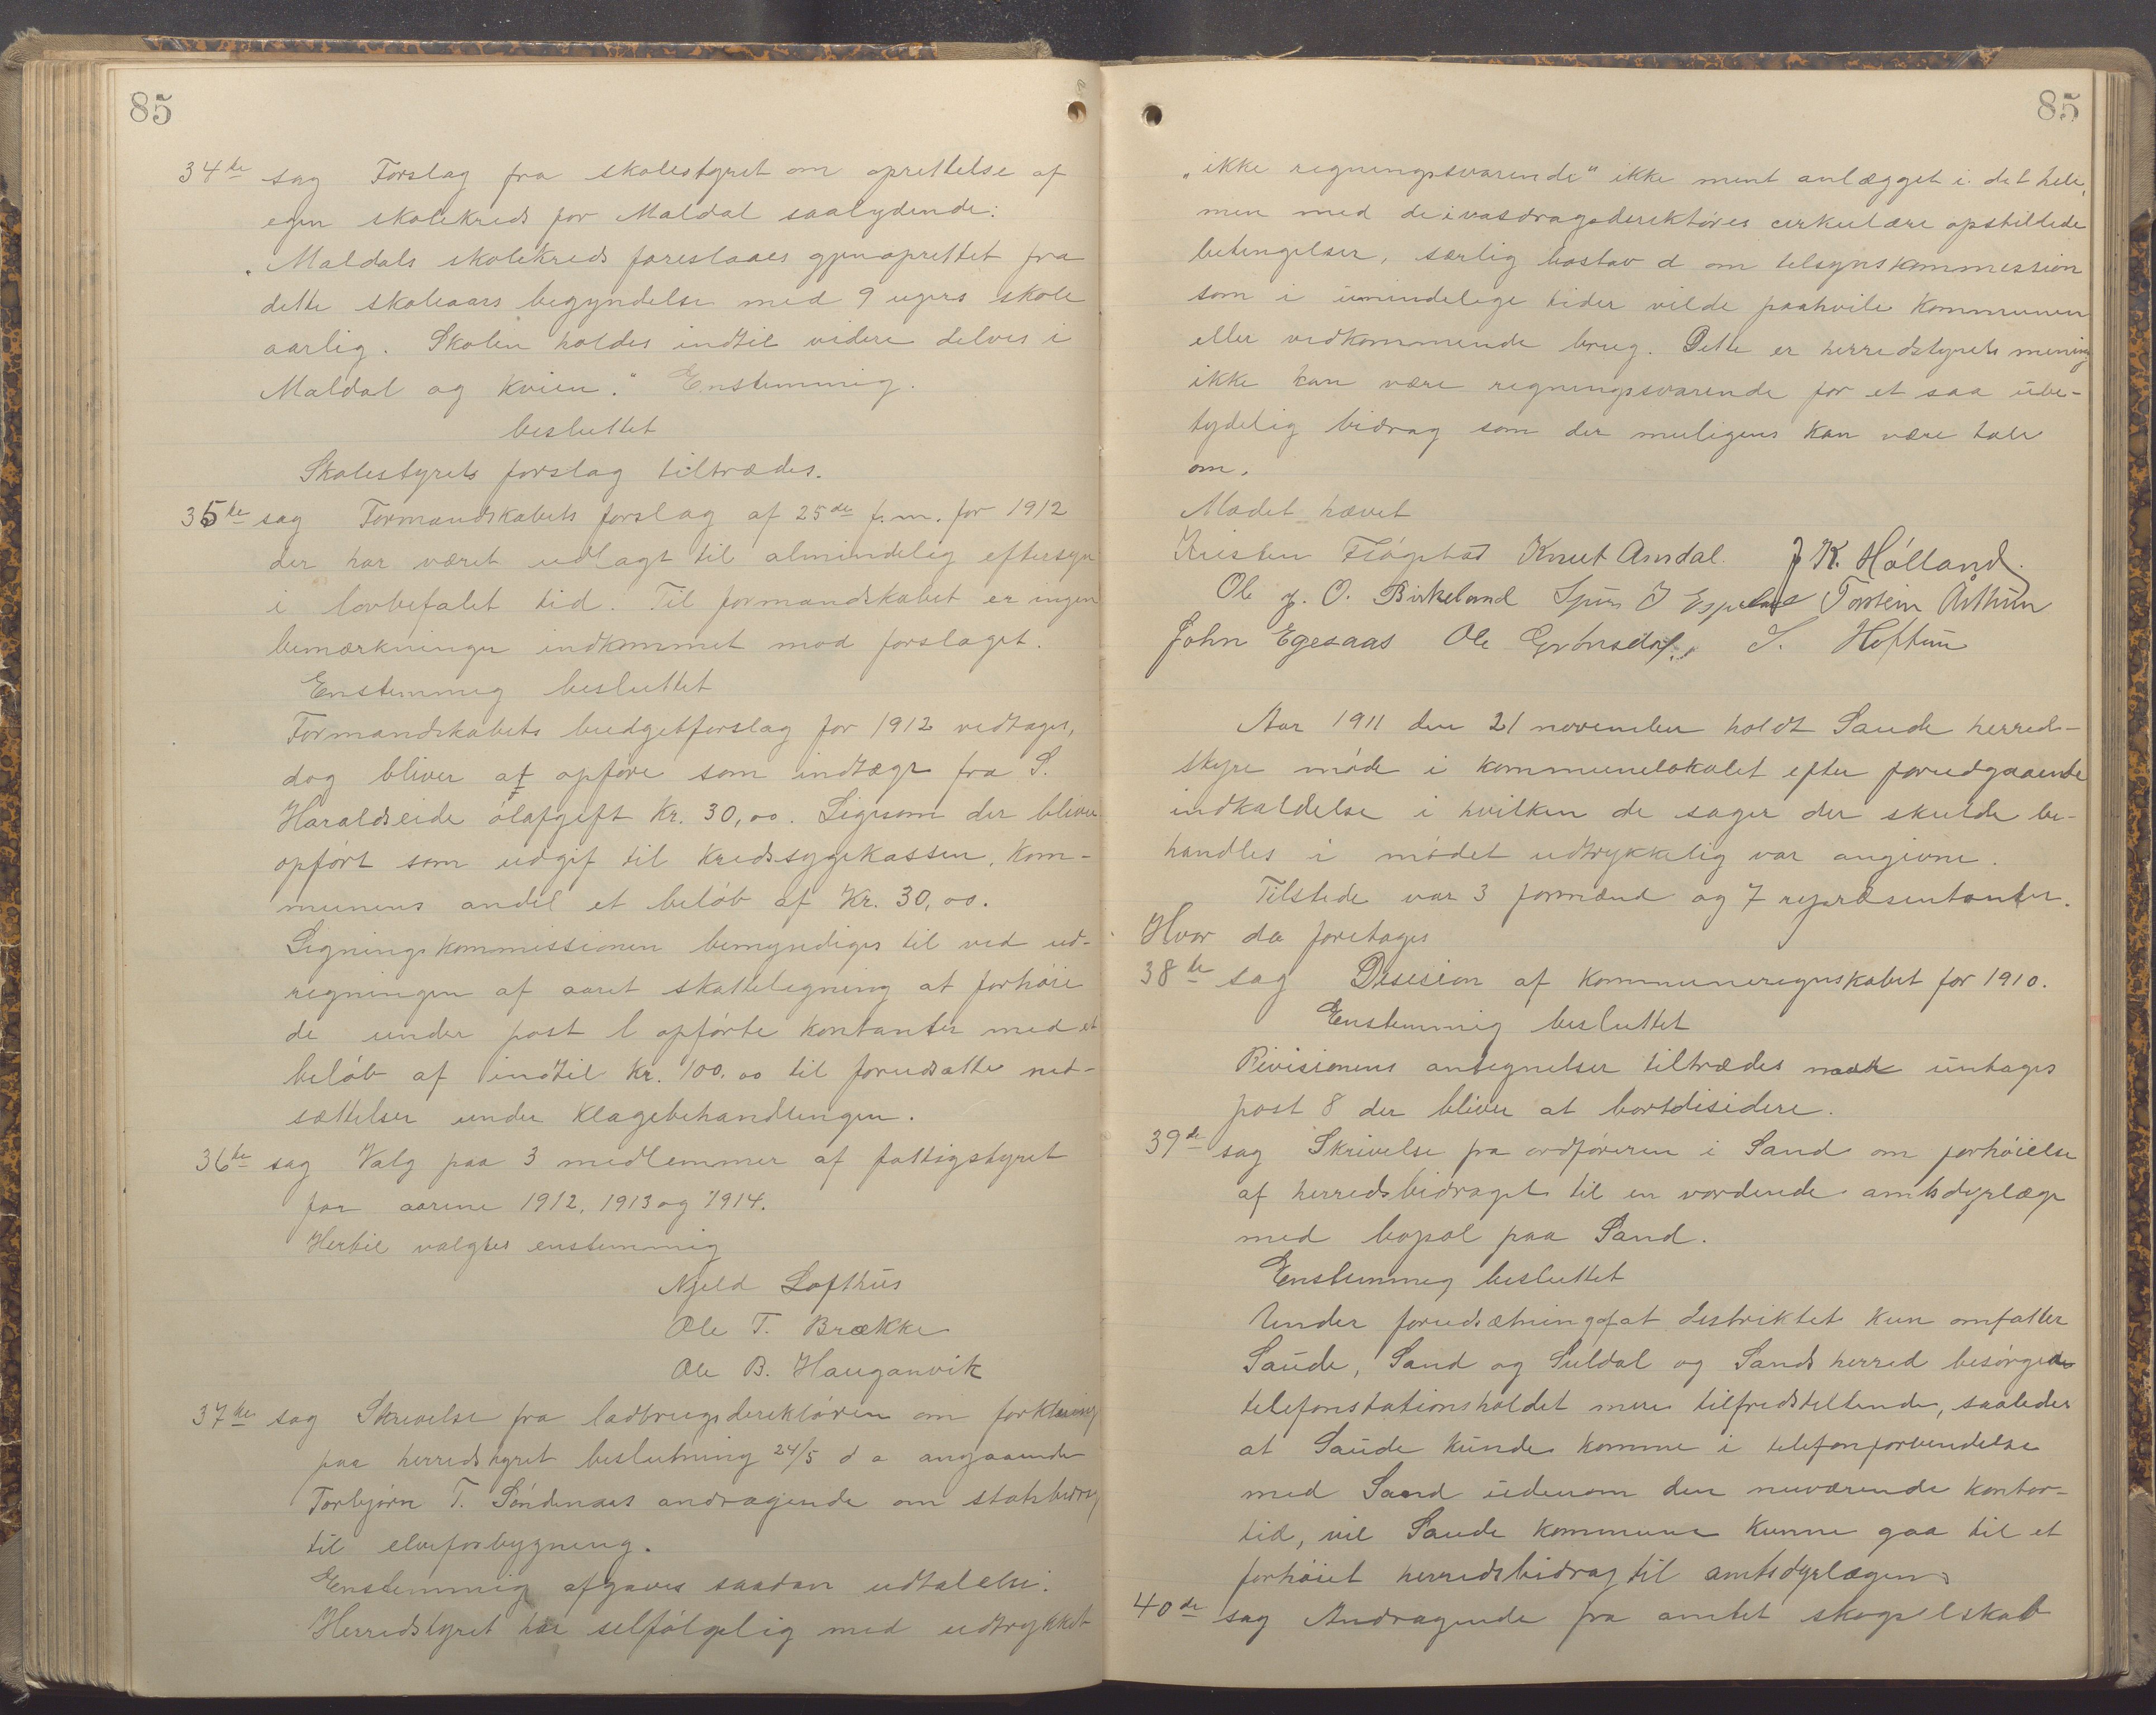 85
34de sag Forslag fra skolestyret om oprettelse af
egen skolekreds for Maldal saalydende:
„Maldals skolekreds foreslaaes gjenoprettet fra
dette skoleaars begyndelse med 9 ugers skole
aarlig. Skolen holdes indtil videre delves i
Maldal og Kvien." Enstemmig
besluttet
Skolestyrets forslag tiltrædes.
35te sag Formandskabets forslag af 25de f.m. for 1912
der har været udlagt til almindelig eftersyn
i lovbefalet tid. Til formandskabet er ingen
bemærkninger indkommet mod forslaget.
Enstemmig besluttet
Formandskabets budgetforslag for 1912 vedtages,
dog bliver at opføre som indtægt fra S.
Haraldseide ølafgift Kr. 30,00. Ligesom der bliver
opført som udgif til Kredssygekassen, Kom-
munens andel et beløb af Kr. 30,00.
Ligningskommissionen bemyndiges til ved ud-
regningen af aaret skatteligning at forhøie
de under post l opførte kontanter med et
beløb af indtil Kr. 100,00 til forudsatte ned-
sættelser under Klagebehandlingen.
36te sag Valg paa 3 medlemmer af fattigstyret
for aarene 1912, 1913 og 1914.
Hertil valgtes enstemmig
Njeld Lofthus
Ole T. Brække
Ole B. Hauganvik
37te sag Skrivelse fra ladbrugsdirektøren om forklaring
paa herredstyret beslutning 24/5 d a angaaende
Torbjørn T. Søndenaas andragende om statsbidrag
til elveforbygning.
Enstemmig afgaves saadan udtalelse:
Herredstyret har selfølgelig med udtrykket
85
„ikke regningssvarende" ikke ment anlægget i det hele,
men med de i vasdragsdirektøres cirkulære opstillede
betingelser, særlig bostav d om tilsynskommission
som i umindelige tider vilde paahvile Kommunen
eller vedkommende brug. Dette er herredstyrets mening
ikke kan være regningssvarende for et saa ube-
tydelig bidrag som der muligens kan være tale
om.
Mødet hævet
Kristen Fløgstad Knut Amdal. J K. Hølland.
Ole J. O. Birkeland J Espeland Torstein Årthun
John Egesaas Ole Grønsdal. S. Hoftun
Aar 1911 den 21 november holdt Saude herred-
styre møde i kommunelokalet efter forudgaaende
indkaldelse i hvilken de sager der skulde be-
handles i mødet udtrykkelig var angivne.
Tilstede var 3 formænd og 7 repræsentanter.
Hvor da foretages
38te sag Desision af Kommuneregnskabet for 1910.
Enstemmig besluttet
Revisionens antegnelser tiltrædes untages
post 8 der bliver at bortdisidere.
39de sag Skrivelse fra ordføreren i Sand om forhøielse
af herredsbidraget til en vordende amtsdyrlæge
med bopol paa Sand.
Enstemmig besluttet
Under forudsætning af at distriktet kun omfatter
Saude, Sand og Suldal og Sands herred besørger
telefonstationsholdet mere tilfredstillende, saaledes
at Saude kunde komme i telefonforbindelse
med Sand udenom den nuværende kontor-
tid, vil Saude kommune kunne gaa til et
forhøiet herredsbidrag til amtsdyrlægen
40de sag Andragende fra amtet skogselskab